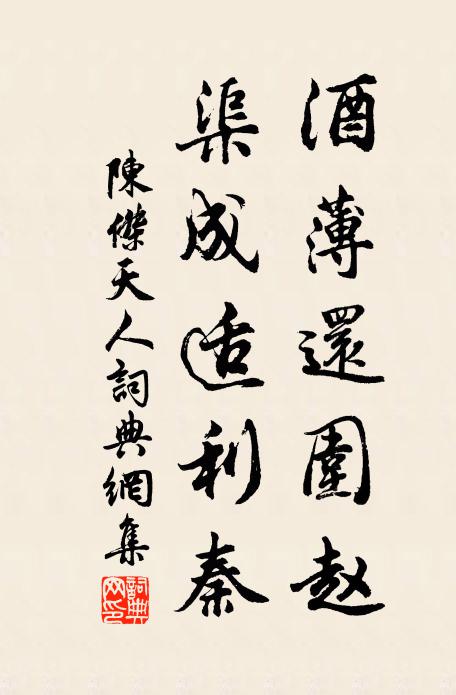 酒薄還圍赵
渠成适利秦
陳傑天人詞典網集
詞典网印